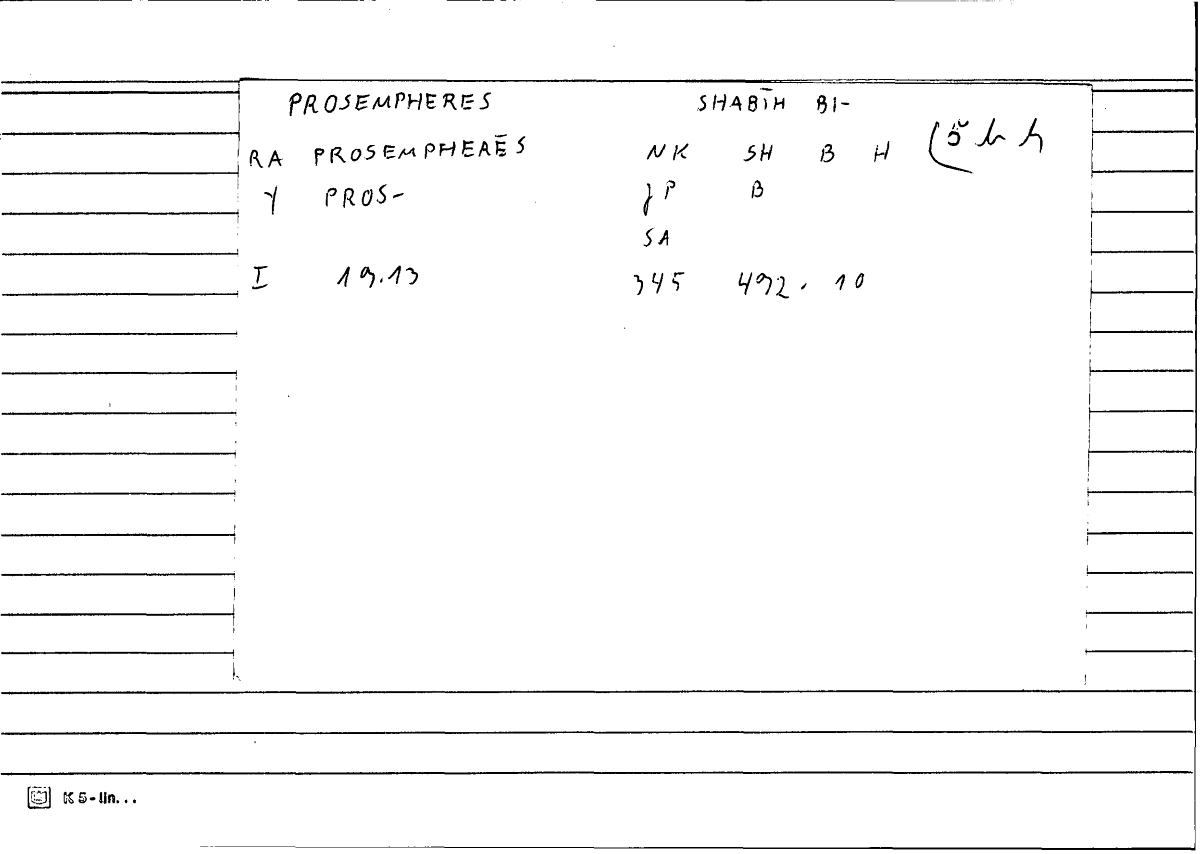 PROSEMPHERES SHABĪH BI-
RA PROSEMPHERĒS NK SH B H (š b h
Y PROS- JP B
SA
I 19.13 345 492.10
K 5-lin...